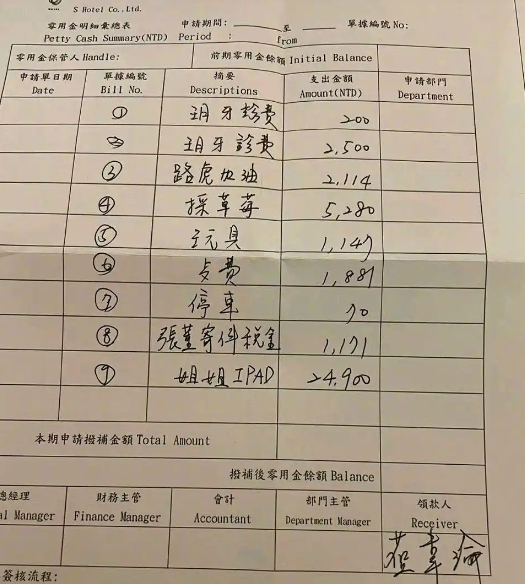 S Hotel Co.,Ltd.
零用金明細彙總表 申請期間: 至 單據編號 No:
Petty Cash Summary(NTD) Period : from
零用金保管人 Handle: 前期零用金餘額 Initial Balance
申請單日期 單據編號 摘要 支出金額 申請部門
Date Bill No. Descriptions Amount(NTD) Department
① 玥牙診費 200
② 玥牙診費 2,500
③ 路虎加油 2,114
④ 採草莓 5,280
⑤ 玩具 1,147
⑥ 費 1,881
⑦ 停車 70
⑧ 張董寄件稅金 1,171
⑨ 姐姐IPAD 24,900
本期申請撥補金額 Total Amount
撥補後零用金餘額 Balance
總經理 財務主管 會計 部門主管 領款人
al Manager Finance Manager Accountant Department Manager Receiver
簽核流程: